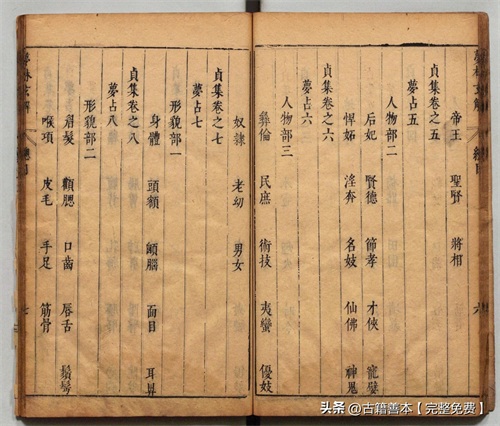 夢林玄解 總目 六
帝王 聖賢 將相
貞集卷之五
夢占五
人物部二
后妃 賢德 節孝 才俠 寵嬖
悍妬 淫奔 名妓 仙佛 神鬼
貞集卷之六
夢占六
人物部三
彝倫 民庶 術技 夷蠻 優妓
奴隸 老幼 男女
貞集卷之七
夢占七
形貌部一
身體 頭額 顱腦 面目 耳鼻
貞集卷之八
夢占八
形貌部二
眉髮 顴腮 口齒 唇舌 鬚髩
喉項 皮毛 手足 筋骨
夢林玄解 總目 七
头条 @古籍善本【完整免费】